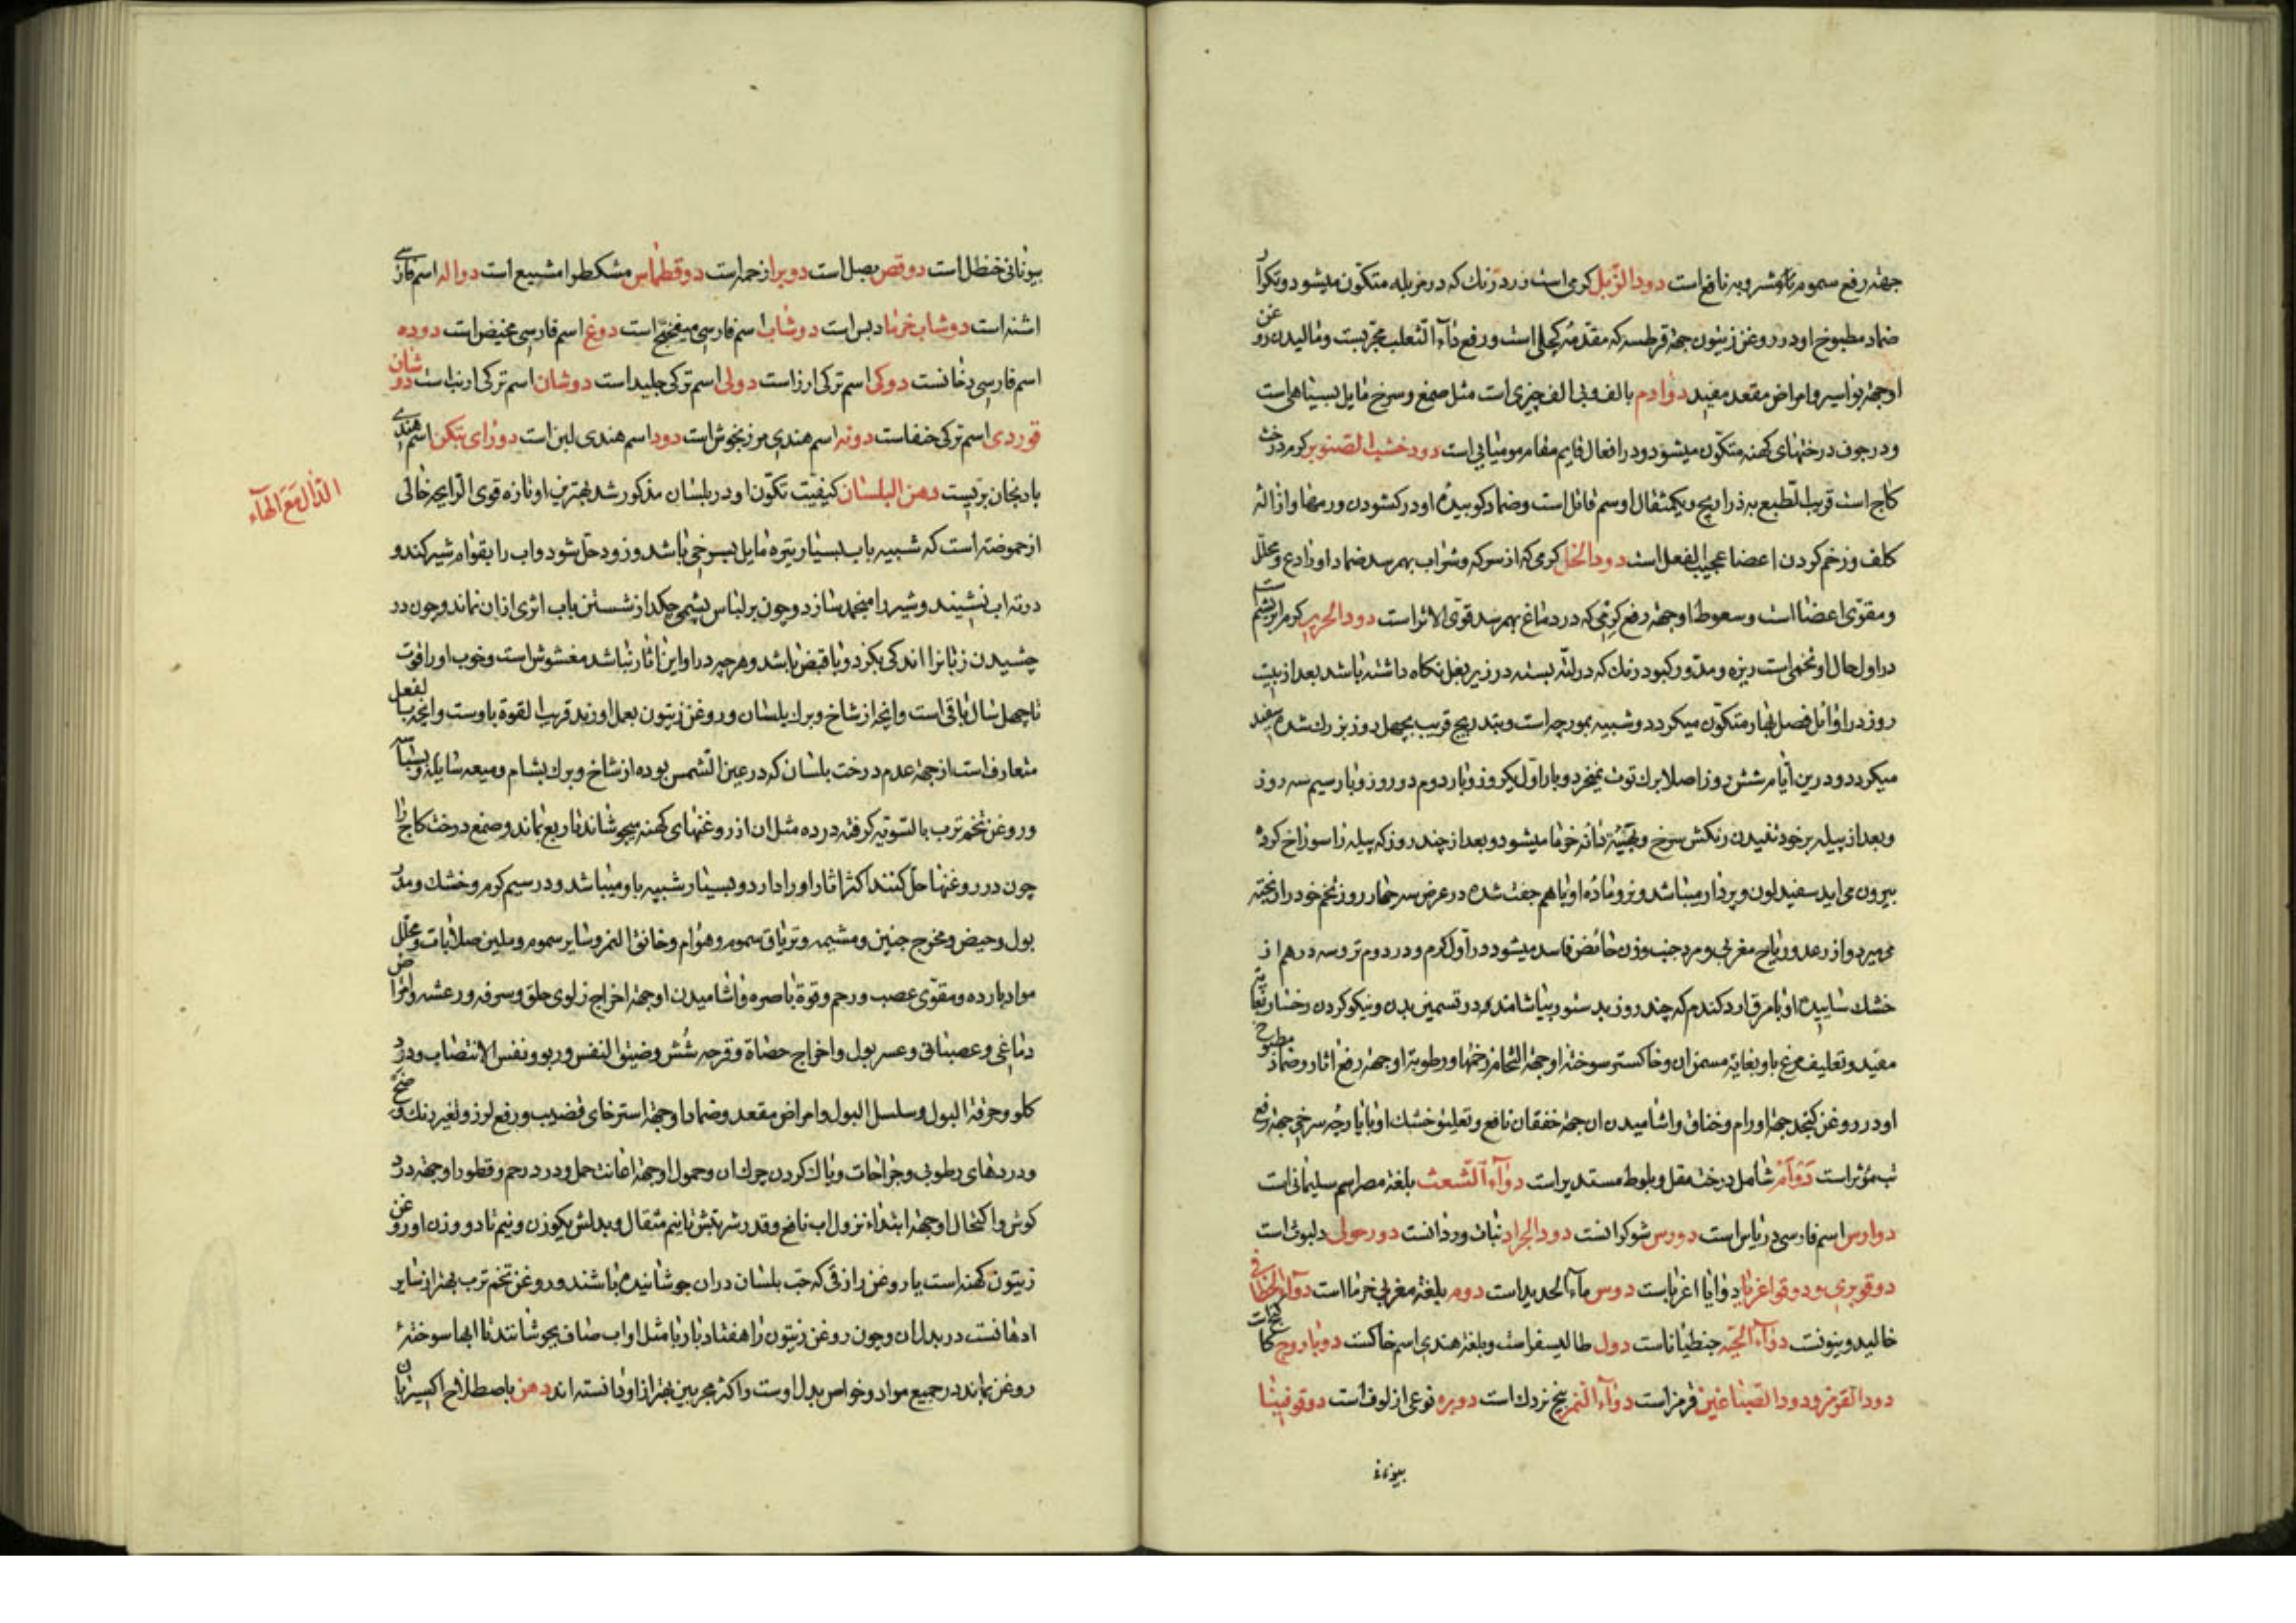 جهة رفع سموم باردة مشروبه نافع است دود الزبل کرمی است زرد رنك که در مزبله متکون میشود و تکرار
ضماد مطبوخ او در روغن زیتون جهة قرطسه که مقدمه کچلی است و رفع داء الثعلب مجربست و مالیدن روغن
او جهة بواسیر و امراض مقعد مفید دوادم بالف و بی الف چیزی است مثل صمغ و سرخ مایل بسیاهی است
و در جوف درختهای کهنه متکون میشود و در افعال قایم مقام مومیایی است دود خشب الصنوبر کرم درخت
کاج است قریب الطبع به ذراریح و یکمثقال او سم قاتل است و ضماد کوبیده او در کشودن ورمها و ازاله
کلف و زخم کردن اعضا عجیب الفعل است دود الخل کرمی که از سرکه و شراب بهم رسد ضماد او رادع و محلل
و مقوی اعضا است و سعوط او جهة رفع کرمی که در دماغ بهم رسد قوی الاثر است دود الحریر کرم ابریشم است
در اول حال او تخمی است ریزه و مدور کبود رنك که در لته بسته در زیر بغل نکاه داشته باشد بعد از بیست
روز در اوائل فصل بهار متکون میکردد و شبیه بمورچه است و بتدریج قریب بچهل روز بزرك شده سفید
میکردد و درین ایام شش روز اصلا برك توت نمیخورد و بار اول یکروز و بار دوم دو روز و بار سیم سه روز
و بعد از پیله بر خود تنیدن رنکش سرخ و بجثه دانه خرما میشود و بعد از چند روز که پیله را سوراخ کرده
بیرون می اید سفید لون و پردار میباشد و نر و ماده او با هم جفت شده در عرض سه چهار روز تخم خود را ریخته
می میرد و از رعد و ریاح مغربی و مرد جنب و زن حائض فاسد میشود در اول کرم و در دوم تر و سه درهم از
خشك ساییده او با مرق ارد کندم که چند روز بدستور بیاشامند در تسمین بدن و نیکو کردن رخسار بغایت
مفید و تعلیف مرغ باو بغایة مسمن ان و خاکستر سوخته او جهة التحام زخمها و رطوبة او جهة رفع اثار و ضماد مطبوخ
او در روغن کنجد جهة اورام و خناق و اشامیدن ان جهة خفقان نافع و تعلیق خشك او با پارچه سرخی جهة رفع
تب مؤثر است دوام شامل درخت مقل و بلوط مستدیر است دواء الشعث بلغة مصر اسم سلیمانی است
دوارس اسم فارسی دریاس است دورس شوکرانست دود الجراد نبات وردانست دورحولی دلبوث است
دوقوبری و دوقواغریا دوایا اغریاست دوس ماء الحدید است دوم بلغة مغربی خرما است دواء الخطاطیف
خالیدونیونست دواء الحیه جنطیانا است دول طالیسفر است و بلغة هندی اسم خاکست دوباروح
دود القرمز و دود الصباغین قرمز است دواء النمر بیخ نزدك است دویره نوعی از لوف است دوقوفینا
بیونانی
بیونانی حنظل است دوقص بصل است دوبراز حمر است دوقطماس مشکطرامشیع است دواله اسم فارسی
اشنه است دوشاب خرما دبس است دوشاب اسم فارسی میفختج است دوغ اسم فارسی مخیض است دوده
اسم فارسی دخانست دوکی اسم ترکی ارز است دولی اسم ترکی جلید است دوشان اسم ترکی ارنب است دوشان
قوردی اسم ترکی خنفا است دونه اسم هندی مرزنجوش است دود اسم هندی لبن است دورای بتکن اسم هندی
بادنجان بریست دهن البلسان کیفیت تکون او در بلسان مذکور شد بهترین او تازه قوی الرایحه خالی
الدال مع الهاء
از حموضة است که شبیه باب بسیار تیره مایل بسرخی باشد و زود حل شود و اب را بقوام شیر کند و
در ته اب نشیند و شیر را منجمد سازد و چون بر لباس پشمی چکد از شستن باب اثری ازان نماند و چون در
چشیدن زبانرا اندکی بکزد و با قبض باشد و هرچه دراو این اثار نباشد مغشوش است و خوب او را قوت
تا چهل سال باقی است و انچه از شاخ و برك بلسان و روغن زیتون بعمل اورند قریب القوة باوست و انچه بالفعل
متعارف است از جهة عدم درخت بلسان که در عین الشمس بوده از شاخ و برك بشام و میعه سایله
و روغن تخم ترب بالسویه کرفته در ده مثل ان از روغنهای کهنه میجوشانند تا ربع بماند و صمغ درخت کاج را
چون در روغنها حل کنند اکثر اثار او را دارد و بسیار شبیه باو میباشد و در سیم کرم و خشك و مدر
بول و حیض و مخرج جنین و مشیمه و تریاق سموم و هوام و خانق النمر و سایر سموم و ملین صلابات و محلل
مواد بارده و مقوی عصب و رحم و قوة باصره و اشامیدن او جهة اخراج زلوی حلق و سرفه و رعشه و امراض
دماغی و عصبانی و عسر بول و اخراج حصاة و قرحه شش و ضیق النفس و ربو و نفس الانتصاب و درد
کلو و حرقة البول و سلسل البول و امراض مقعد و ضماد او جهة استرخای قضیب و رفع لرز و تغیر رنك
و دردهای رطوبی و جراحات و پاك کردن چرك ان و حمول او جهة اعانت حمل و درد رحم و قطور او جهة درد
کوش و اکتحال او جهة ابتداء نزول اب نافع و قدر شربتش تا نیم مثقال و بدلش یکوزن و نیم تا دو وزن او روغن
زیتون کهنه است یا روغن رازقی که حب بلسان دران جوشانیده باشند و روغن تخم ترب بهتر از سایر
ادهانست در بدل ان و چون روغن زیتون را هفتاد بار با مثل او اب صاف بجوشانند تا ابها سوخته
روغن بماند در جمیع مواد و خواص بدل اوست و اکثر مجربین بهتر از او دانسته اند دهن باصطلاح اکسیریان